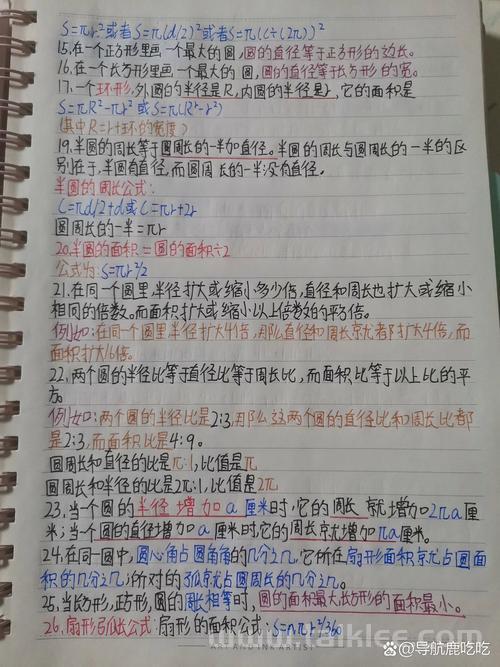 S=πr²或者S=π(d/2)²或者S=π(C÷(2π))²
15.在一个正方形里画一个最大的圆,圆的直径等于正方形的边长。
16.在一个长方形里画一个最大的圆,圆的直径等于长方形的宽。
17.一个环形,外圆的半径是R,内圆的半径是r,它的面积是
S=πR²-πr²或S=π(R²-r²)
(其中R=r+环的宽度)
19.半圆的周长等于圆周长的一半加直径。半圆的周长与圆周长的一半的区
别在于,半圆有直径,而圆周长的一半没有直径。
半圆的周长公式:
C=πd/2+d或C=πr+2r
圆周长的一半=πr
20.半圆的面积=圆的面积÷2
公式为:S=πr²/2
21.在同一个圆里,半径扩大或缩小多少倍,直径和周长也扩大或缩小
相同的倍数。而面积扩大或缩小以上倍数的平方倍。
例如:在同一个圆里半径扩大4倍,那么直径和周长就都扩大4倍,而
面积扩大16倍。
22.两个圆的半径比等于直径比等于周长比,而面积比等于以上比的平
方。
例如:两个圆的半径比是2:3,那么这两个圆的直径比和周长比都
是2:3,而面积比是4:9。
圆周长和直径的比是π:1,比值是π
圆周长和半径的比是2π:1,比值是2π
23.当一个圆的半径增加a厘米时,它的周长就增加2πa厘
米;当一个圆的直径增加a厘米时,它的周长就增加πa厘米。
24.在同一圆中,圆心角占圆角角的几分之几,它所在扇形面积就占圆面
积的几分之几;所对的弧就占圆周长的几分之几。
25.当长方形,正方形,圆的周长相等时,圆的面积最大,长方形的面积最小。
26.扇形弧长公式:扇形的面积公式:S=nπr²/360
www.talklee.com
ART AND INK ARTIST
@导航鹿吃吃